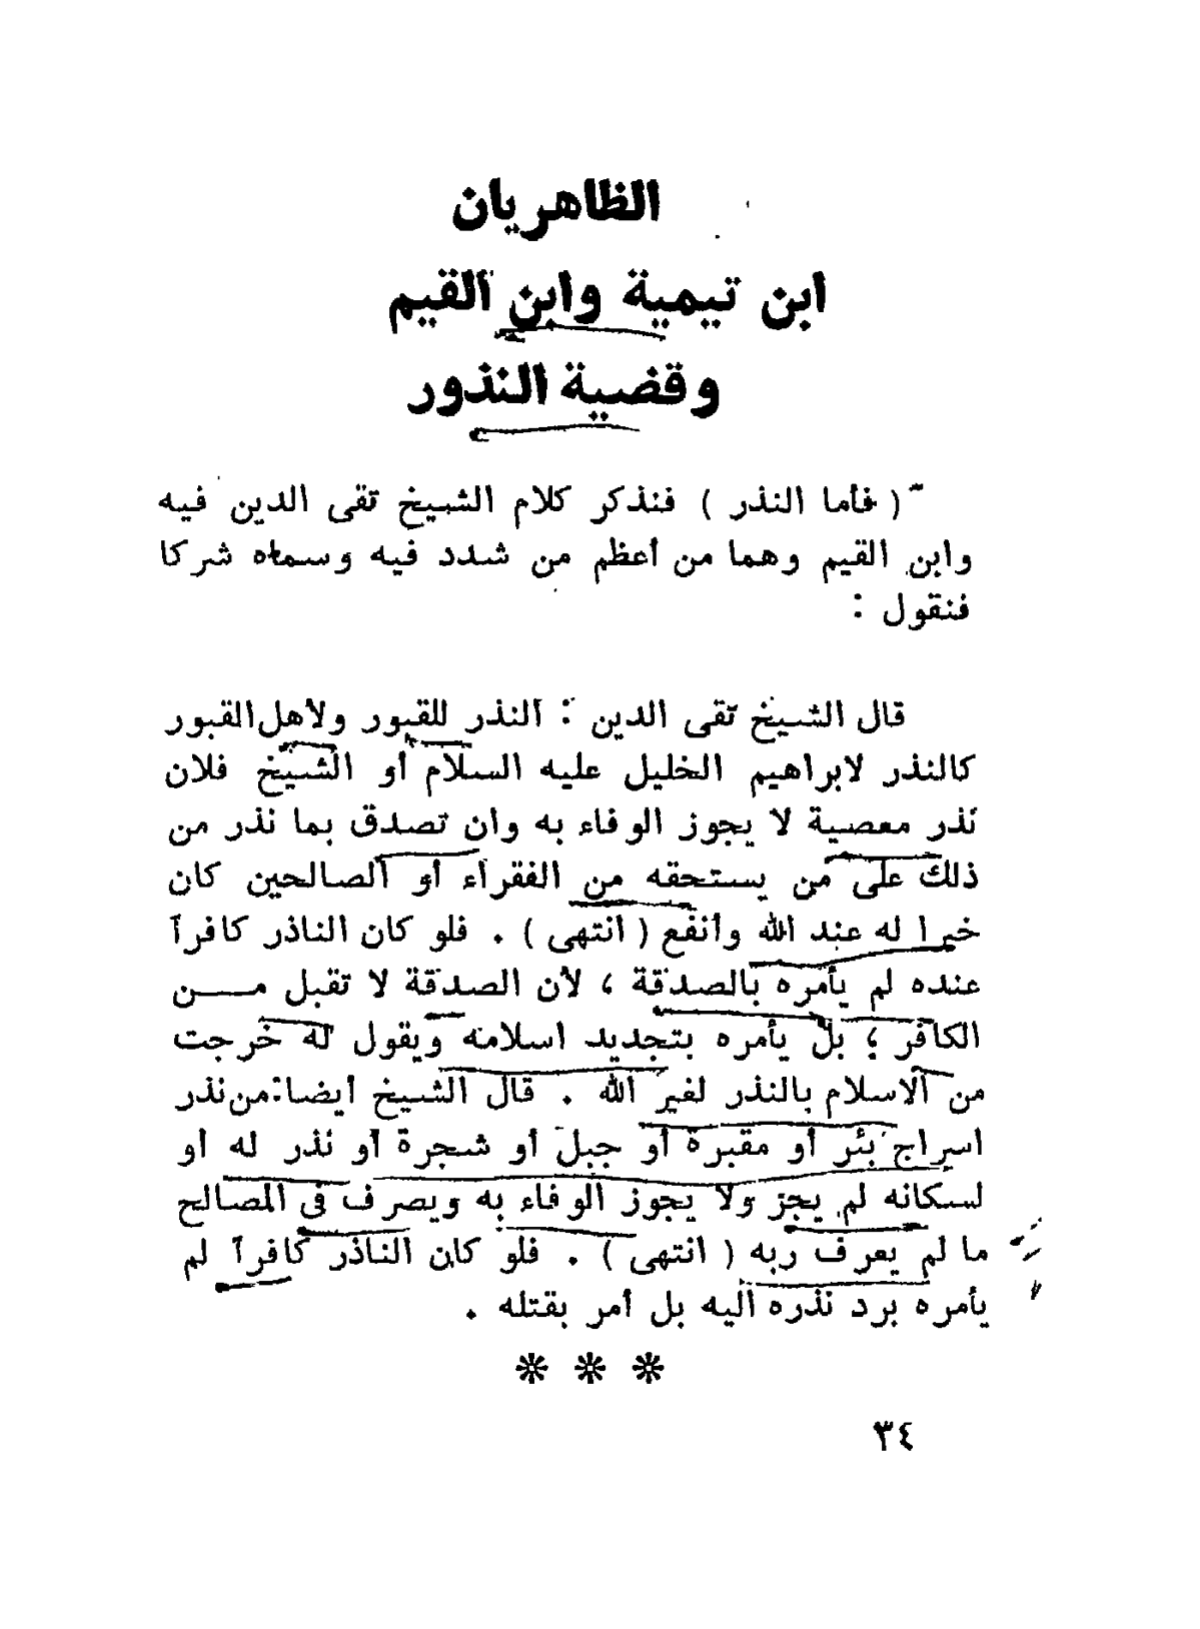 الظاهريان
ابن تيمية وابن القيم
وقضية النذور
( فأما النذر ) فنذكر كلام الشيخ تقى الدين فيه
وابن القيم وهما من أعظم من شدد فيه وسماه شركا
فنقول :
قال الشيخ تقى الدين : النذر للقبور ولأهل القبور
كالنذر لابراهيم الخليل عليه السلام أو الشيخ فلان
نذر معصية لا يجوز الوفاء به وان تصدق بما نذر من
ذلك على من يستحقه من الفقراء أو الصالحين كان
خيرا له عند الله وأنفع ( انتهى ) . فلو كان الناذر كافرآ
عنده لم يأمره بالصدقة ، لأن الصدقة لا تقبل مــــن
الكافر ؛ بل يأمره بتجديد اسلامه ويقول له خرجت
من الاسلام بالنذر لغير الله . قال الشيخ أيضا : من نذر
اسراج بئر أو مقبرة أو جبل أو شجرة أو نذر له أو
لسكانه لم يجز ولا يجوز الوفاء به ويصرف فى المصالح
ما لم يعرف ربه ( انتهى ) . فلو كان الناذر كافرآ لم
يأمره برد نذره اليه بل أمر بقتله .
* * *
٣٤